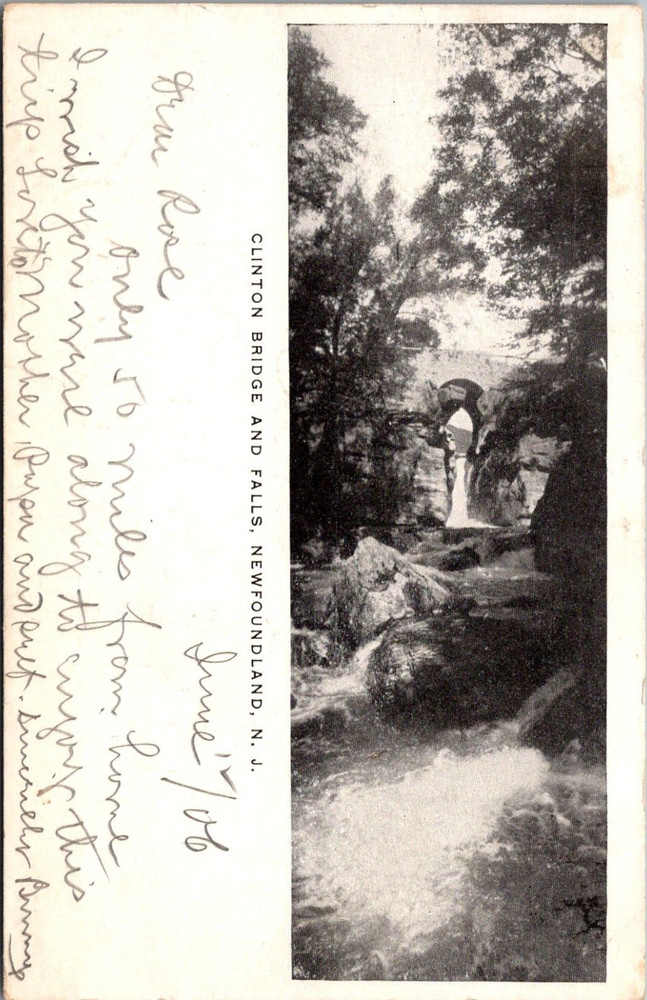 CLINTON BRIDGE AND FALLS, NEWFOUNDLAND, N. J.
June 12/06
Dear Rose
Only 50 miles from home
I wish you were along to enjoy this
trip Love to Mother, Papa and self. Sincerely